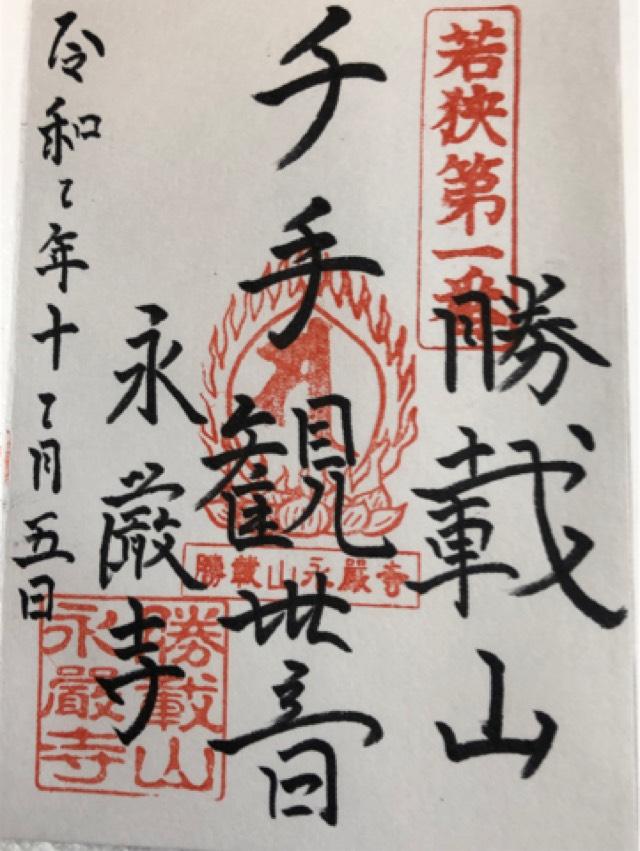 若狭第一番
勝載山
千手観世音
勝載山永嚴寺
永厳寺
勝載山
永嚴寺
令和二年十二月五日